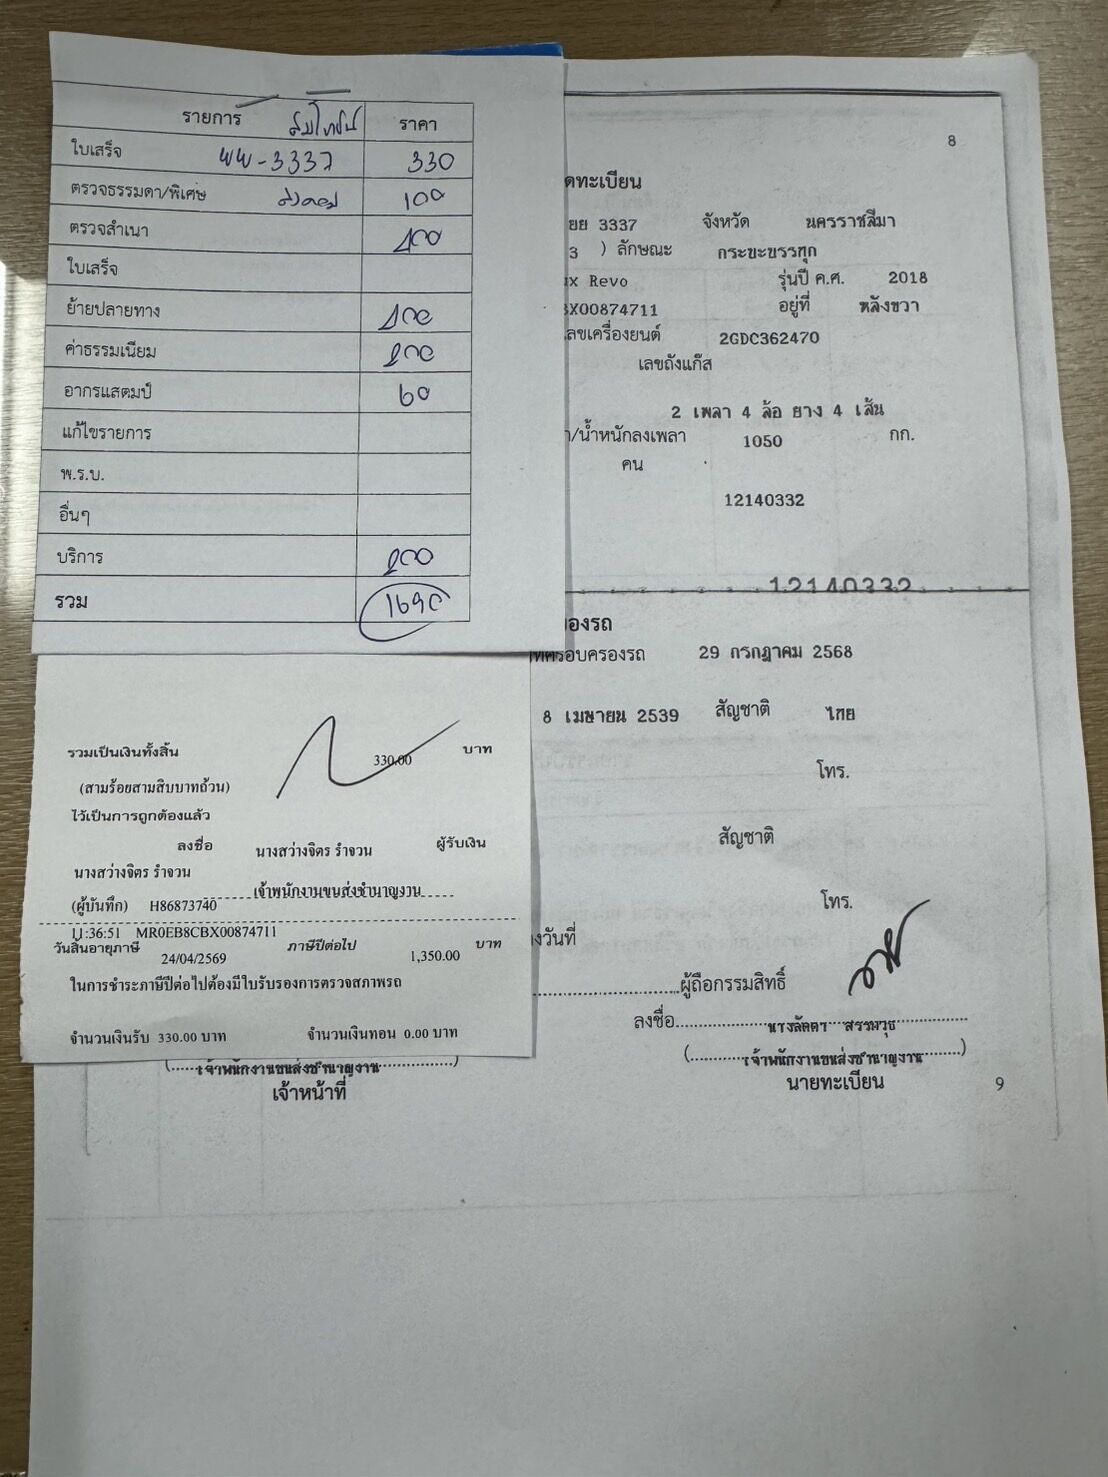 รายการ ราคา
ใบเสร็จ 3337 330
ตรวจธรรมดา/พิเศษ 100
ตรวจสำเนา
ใบเสร็จ
ย้ายปลายทาง
ค่าธรรมเนียม
อากรแสตมป์ 60
แก้ไขรายการ
พ.ร.บ.
อื่นๆ
บริการ
รวม 1690
8
ดทะเบียน
ยย 3337 จังหวัด นครราชสีมา
3 ) ลักษณะ กระบะบรรทุก
ux Revo รุ่นปี ค.ศ. 2018
BX00874711 อยู่ที่ หลังขวา
เลขเครื่องยนต์ 2GDC362470
เลขถังแก๊ส
2 เพลา 4 ล้อ ยาง 4 เส้น
า/น้ำหนักลงเพลา 1050 กก.
คน
12140332
12140332
องรถ
ที่ครอบครองรถ 29 กรกฎาคม 2568
8 เมษายน 2539 สัญชาติ ไทย
โทร.
สัญชาติ
โทร.
งวันที่
ผู้ถือกรรมสิทธิ์
ลงชื่อ นางลัดดา สรรพวุธ
(เจ้าพนักงานขนส่งชำนาญงาน) (เจ้าพนักงานขนส่งชำนาญงาน)
เจ้าหน้าที่ นายทะเบียน 9
รวมเป็นเงินทั้งสิ้น 330.00 บาท
(สามร้อยสามสิบบาทถ้วน)
ไว้เป็นการถูกต้องแล้ว
ลงชื่อ นางสว่างจิตร รำจวน ผู้รับเงิน
นางสว่างจิตร รำจวน
(ผู้บันทึก) H86873740 เจ้าพนักงานขนส่งชำนาญงาน
11:36:51 MR0EB8CBX00874711
วันสิ้นอายุภาษี 24/04/2569 ภาษีปีต่อไป 1,350.00 บาท
ในการชำระภาษีปีต่อไปต้องมีใบรับรองการตรวจสภาพรถ
จำนวนเงินรับ 330.00 บาท จำนวนเงินทอน 0.00 บาท